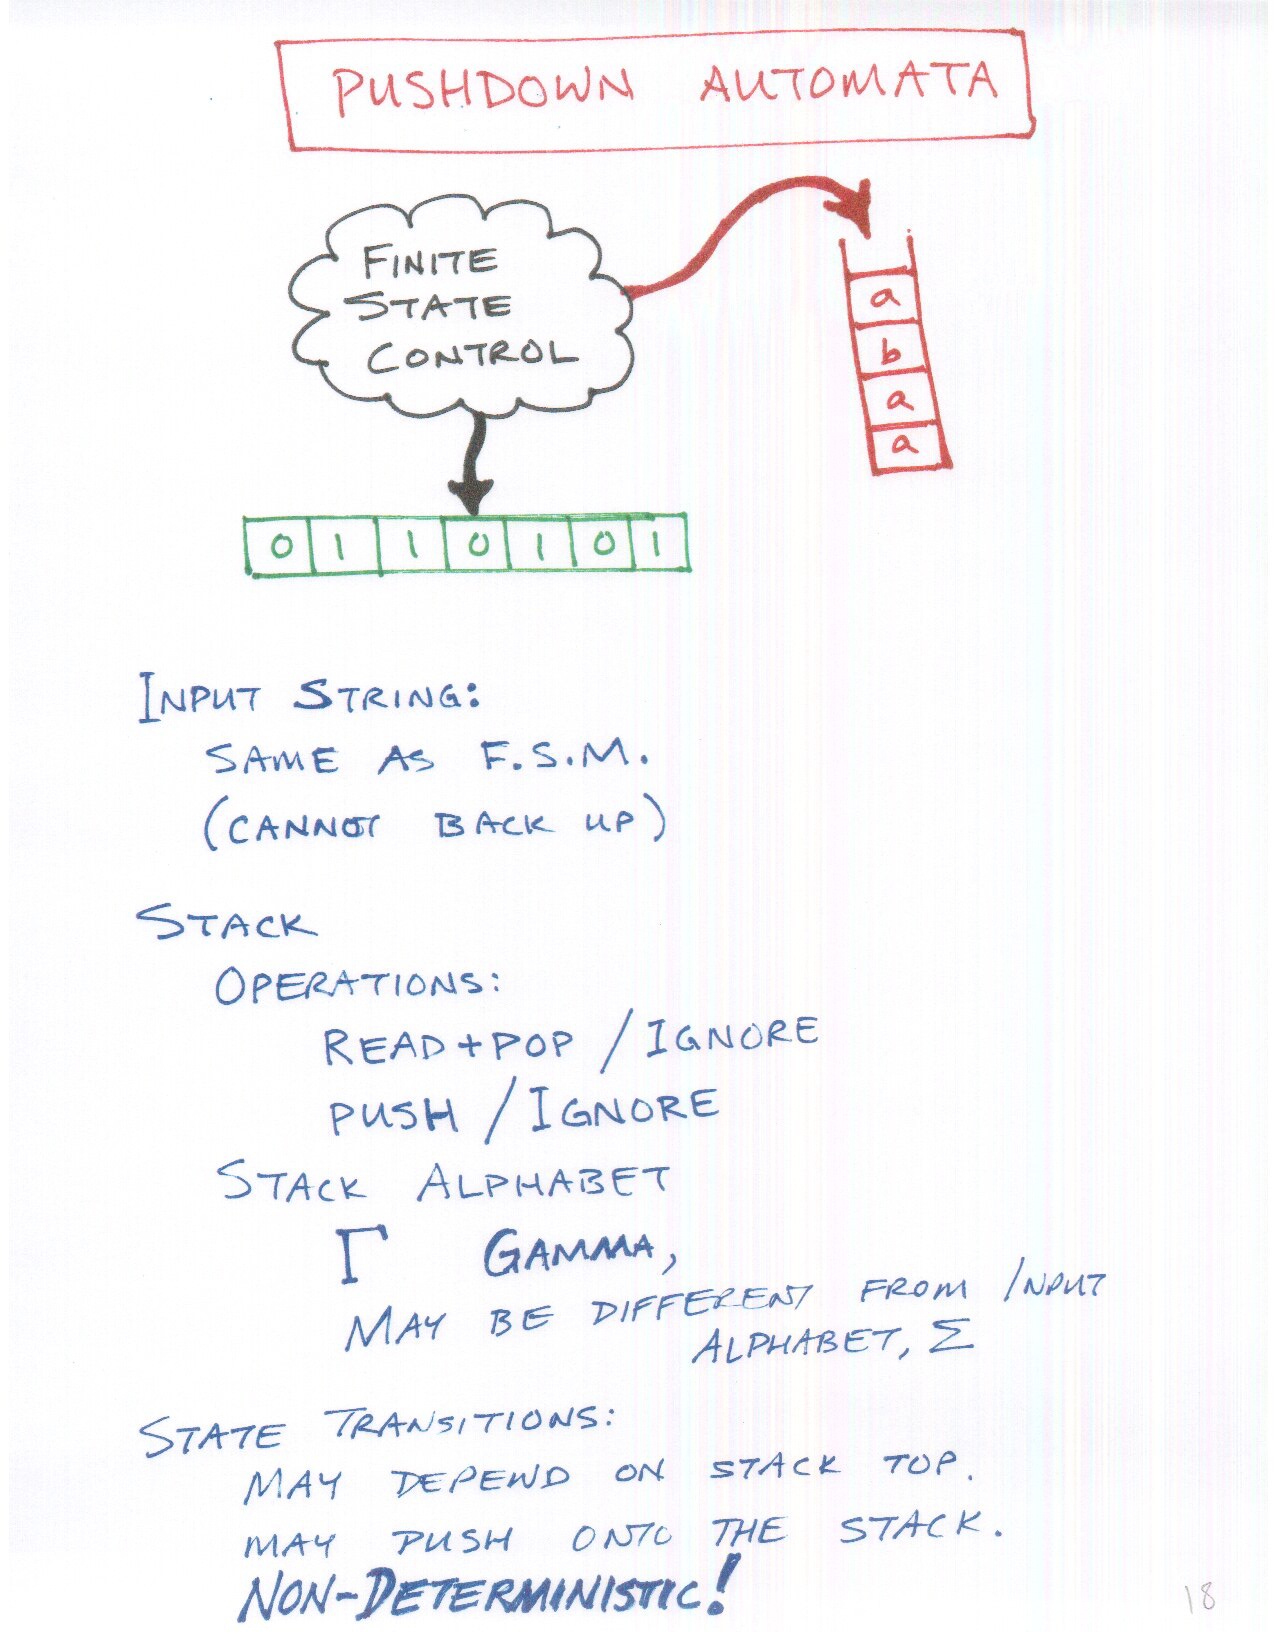 PUSHDOWN AUTOMATA
FINITE
STATE
CONTROL
a
b
a
a
0 1 1 0 1 0 1
INPUT STRING:
SAME AS F.S.M.
(CANNOT BACK UP)
STACK
OPERATIONS:
READ+POP / IGNORE
PUSH / IGNORE
STACK ALPHABET
Γ GAMMA,
MAY BE DIFFERENT FROM INPUT
ALPHABET, Σ
STATE TRANSITIONS:
MAY DEPEND ON STACK TOP.
MAY PUSH ONTO THE STACK.
NON-DETERMINISTIC!
18